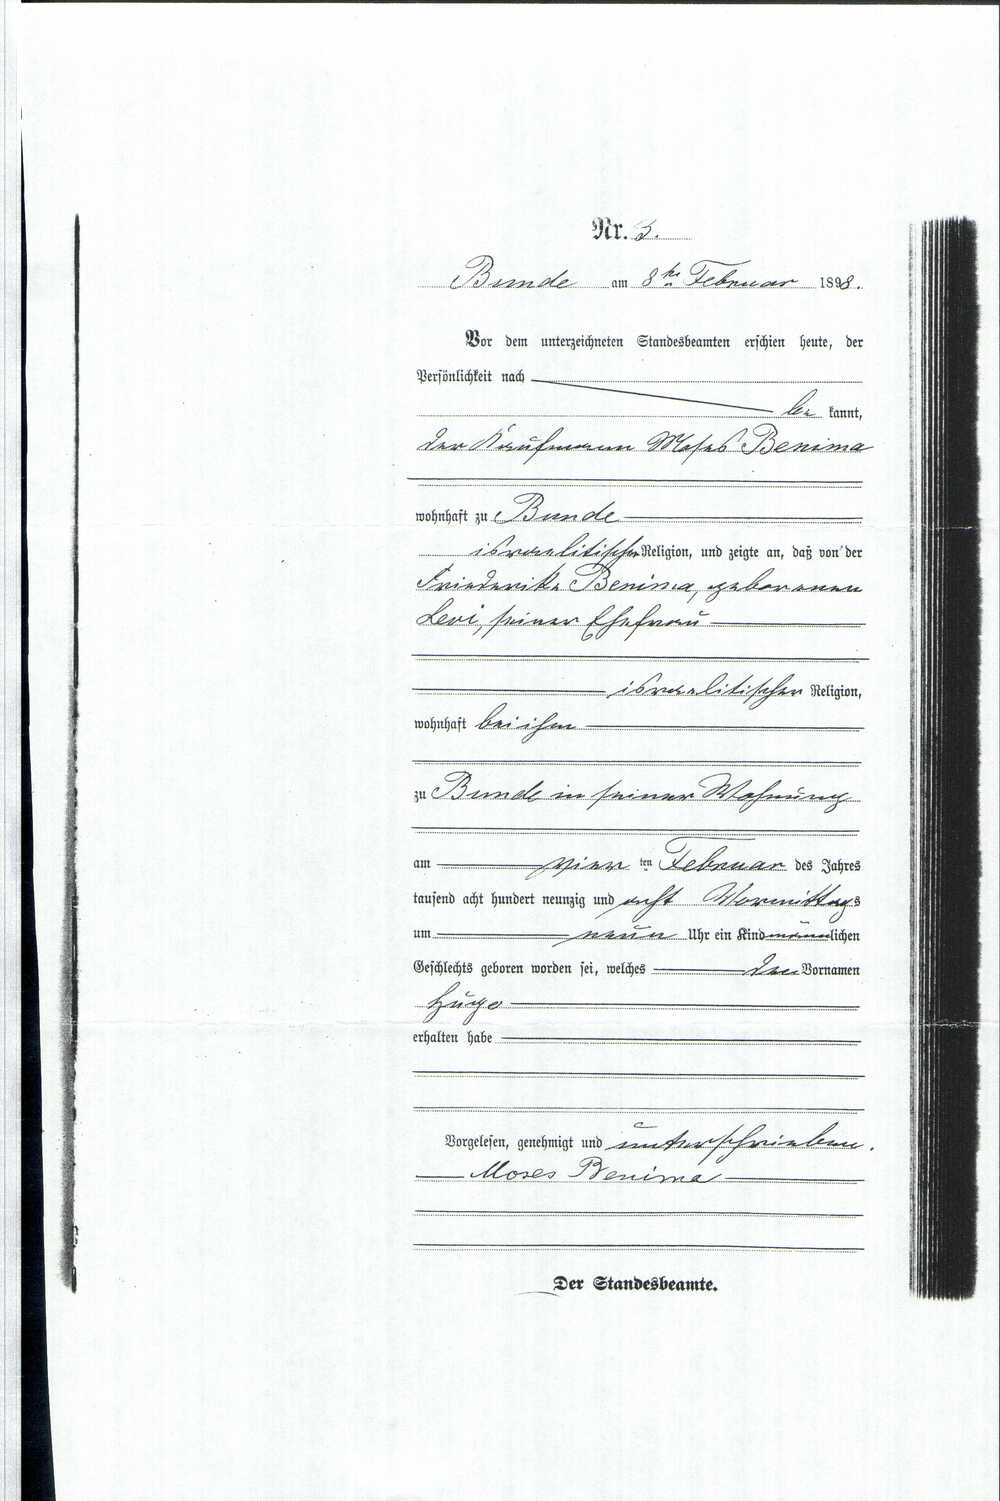 Nr. 3.
Bunde am 8ten Februar 1898.
Vor dem unterzeichneten Standesbeamten erschien heute, der
Persönlichkeit nach
be kannt,
der Kaufmann Moses Benima
wohnhaft zu Bunde
israelitischer Religion, und zeigte an, daß von der
Friederike Benima, geborenen
Levi, seiner Ehefrau
israelitischer Religion,
wohnhaft bei ihm
zu Bunde in seiner Wohnung
am vier ten Februar des Jahres
tausend acht hundert neunzig und acht Vormittags
um neun Uhr ein Kind männlichen
Geschlechts geboren worden sei, welches den Vornamen
Hugo
erhalten habe
Vorgelesen, genehmigt und unterschrieben.
Moses Benima
Der Standesbeamte.